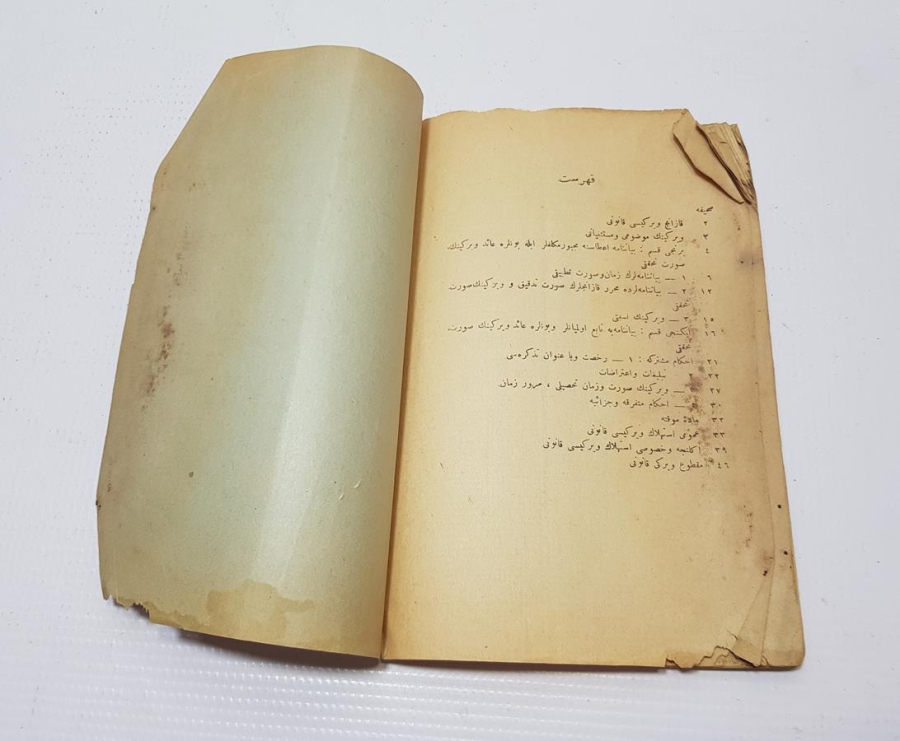 فهرست
صحیفه
٢ قازانج ویركیسی قانونی
٣ ویركینك موضوعی ومستثنیاتی
٤ برنجی قسم : بیاننامه اعطاسنه مجبور مكلفلر ایله بونلره عائد ویركینك
صورت تحققی
٦ ١ — بیاننامه‌لرك زمان وصورت تطبیقی
١٢ ٢ — بیاننامه‌لرده محرر قازانجلرك صورت تدقیق و ویركینك صورت
تحققی
١٥ ٣ — ویركینك نسبتی
١٦ ایكنجی قسم : بیاننامه‌یه تابع اولمیانلر وبونلره عائد ویركینك صورت
تحققی
٢١ احكام مشتركه : ١ — رخصت ویا عنوان تذكره‌سی
٢٢ ٢ تبلیغات واعتراضات
٢٧ — ویركینك صورت وزمان تحصیلی ، مرور زمان
٣٠ — احكام متفرقه وجزائیه
٣٢ مادهٔ موقته
٣٣ عمومی استهلاك ویركیسی قانونی
٣٩ اكلنجه وخصوصی استهلاك ویركیسی قانونی
٤٦ مقطوع ویركی قانونی